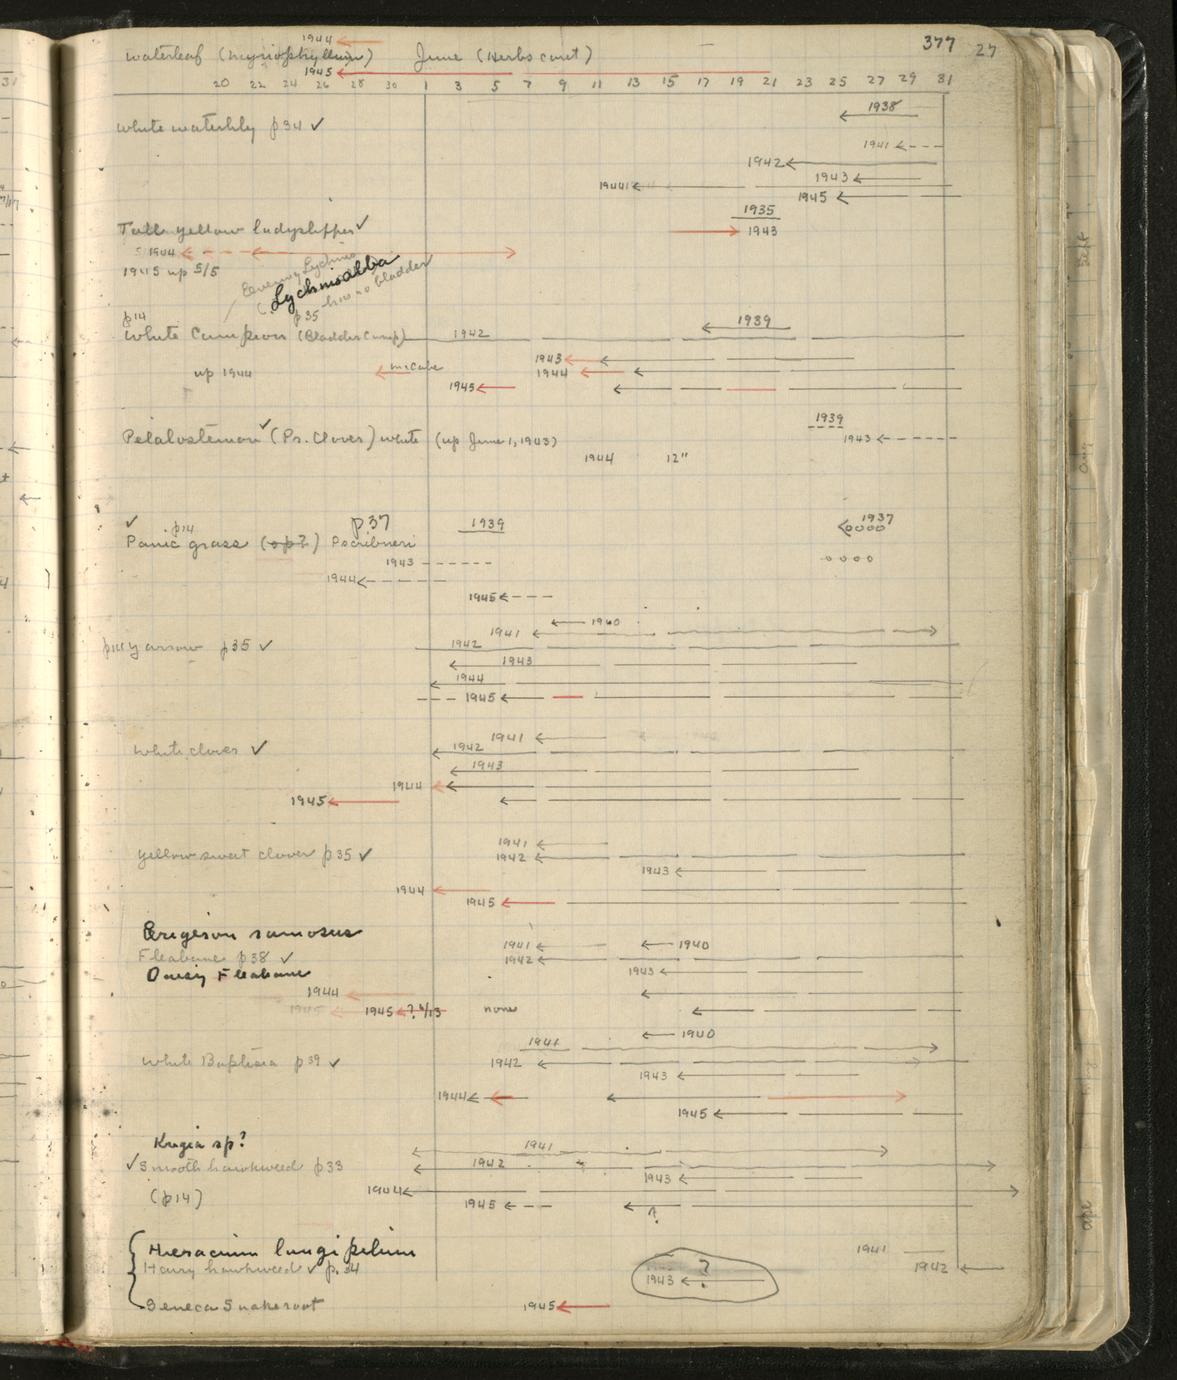 1944
waterleaf (hydrophyllum) June (Herbs cont) 377 27
1945
20 22 24 26 28 30 1 3 5 7 9 11 13 15 17 19 21 23 25 27 29 31
1938
White waterlily p34 ✓
1941
1942
1943
1944
1945
1935
Tall yellow ladyslipper ✓ 1943
1944
1945 up 5/5
Evening Lychnis
(Lychnis alba
p35 has no bladder
p14
White Campion (Bladder Camp) 1942 1939
1943
up 1944 McCabe 1944
1945
1939
Petalostemon ✓ (Pr. Clover) white (up June 1, 1943) 1943
1944 12"
✓ p14 p37 1939 1937
Panic grass (sp?) P scribneri
1943
1944
1945
1940
1941
p14 yarrow p35 ✓ 1942
1943
1944
1945
1941
White clover ✓ 1942
1943
1944
1945
1941
yellow sweet clover p35 ✓ 1942
1943
1944
1945
Erigeron ramosus
1941 1940
Fleabane p38 ✓ 1942
Daisy Fleabane 1943
1944
1945 1945 ? 4/13 none
1940
1941
White Baptisia p39 ✓ 1942
1943
1944
1945
Krigia sp? 1941
✓ Smooth hawkweed p33 1942
1943
(p14) 1944
1945
?
Hieracium longipilum 1941
Hairy hawkweed ✓ p.34 1942
?
1943
Seneca Snakeroot 1945